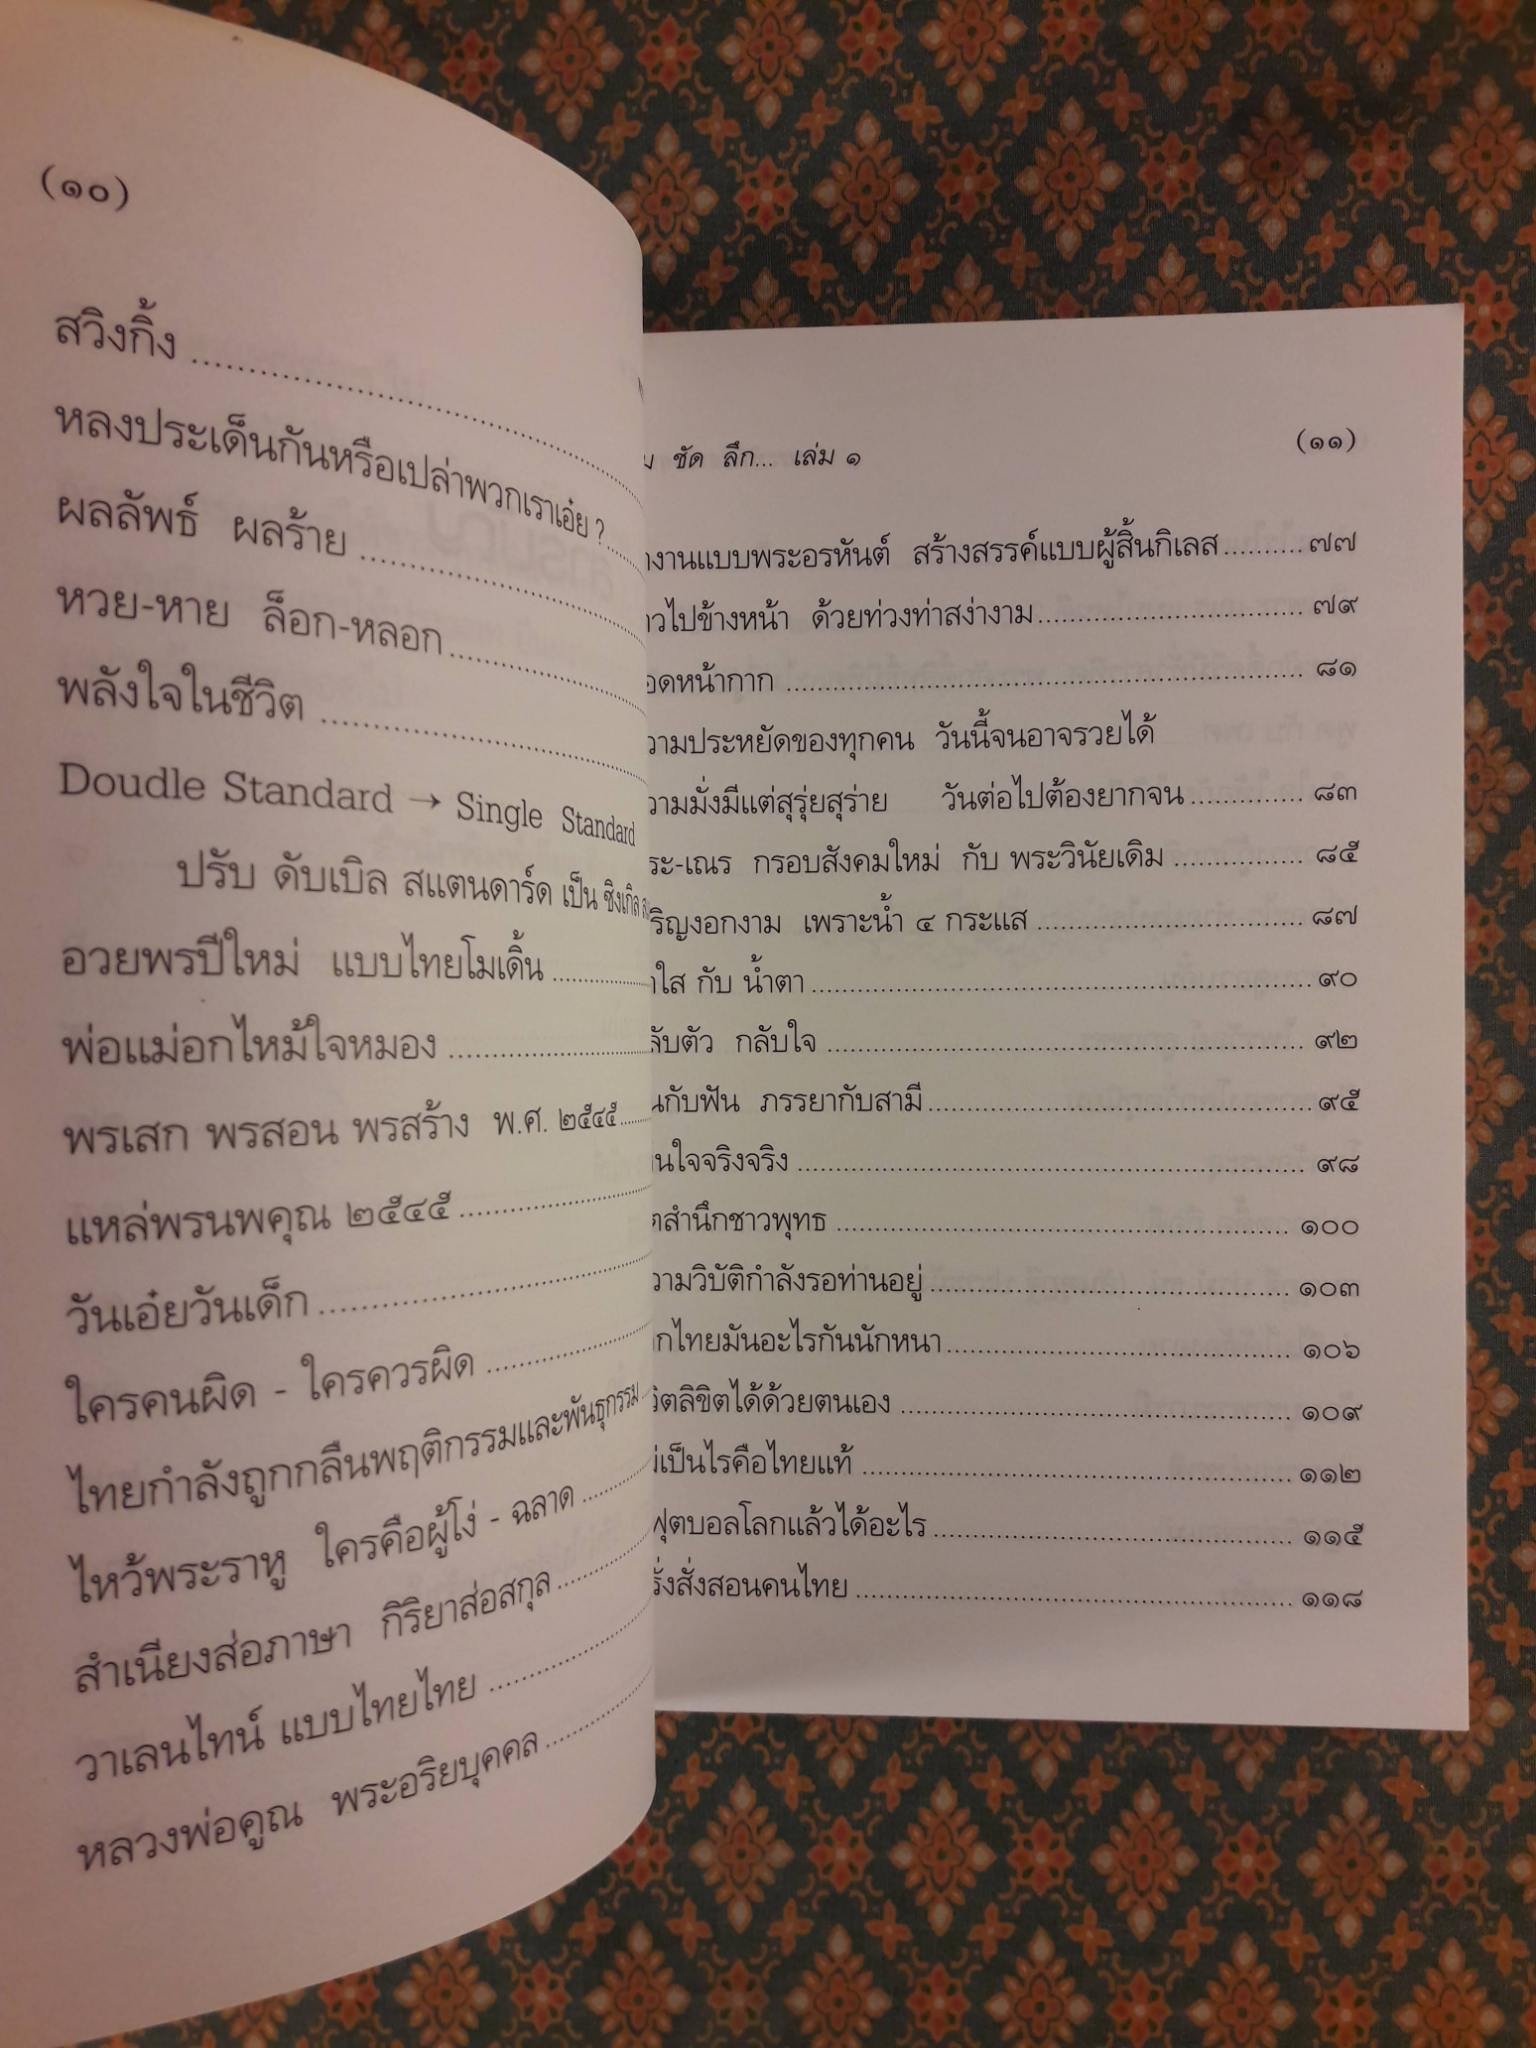 (๑๐)
สวิงกิ้ง
หลงประเด็นกันหรือเปล่าพวกเราเอ๋ย ?
ผลลัพธ์ ผลร้าย
หวย-หาย ล็อก-หลอก
พลังใจในชีวิต
Doudle Standard → Single Standard
ปรับ ดับเบิล สแตนดาร์ด เป็น ซิงเกิล
อวยพรปีใหม่ แบบไทยโมเดิ้น
พ่อแม่อกไหม้ใจหมอง
พรเสก พรสอน พรสร้าง พ.ศ. ๒๕๔๕
แหล่พรนพคุณ ๒๕๔๕
วันเอ๋ยวันเด็ก
ใครคนผิด - ใครควรผิด
ไทยกำลังถูกกลืนพฤติกรรมและพันธุกรรม
ไหว้พระราหู ใครคือผู้โง่ - ฉลาด
สำเนียงส่อภาษา กิริยาส่อสกุล
วาเลนไทน์ แบบไทยไทย
หลวงพ่อคูณ พระอริยบุคคล
ชัด ลึก... เล่ม ๑ (๑๑)
งานแบบพระอรหันต์ สร้างสรรค์แบบผู้สิ้นกิเลส ๗๗
าวไปข้างหน้า ด้วยท่วงท่าสง่างาม ๗๙
อดหน้ากาก ๘๑
วามประหยัดของทุกคน วันนี้จนอาจรวยได้
วามมั่งมีแต่สุรุ่ยสุร่าย วันต่อไปต้องยากจน ๘๓
ระ-เณร กรอบสังคมใหม่ กับ พระวินัยเดิม ๘๕
ริญงอกงาม เพราะน้ำ ๔ กระแส ๘๗
ใส กับ น้ำตา ๙๐
ลับตัว กลับใจ ๙๒
นกับฟัน ภรรยากับสามี ๙๕
นใจจริงจริง ๙๘
ตสำนึกชาวพุทธ ๑๐๐
วามวิบัติกำลังรอท่านอยู่ ๑๐๓
กไทยมันอะไรกันนักหนา ๑๐๖
ิตลิขิตได้ด้วยตนเอง ๑๐๙
ม่เป็นไรคือไทยแท้ ๑๑๒
ฟุตบอลโลกแล้วได้อะไร ๑๑๕
รั่งสั่งสอนคนไทย ๑๑๘